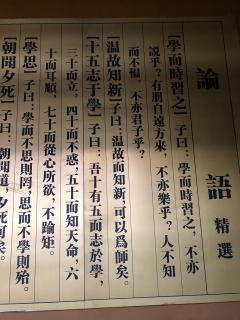 論語 精選
【學而時習之】子曰：學而時習之，不亦
說乎？有朋自遠方來，不亦樂乎？人不知
而不愠，不亦君子乎？
【温故知新】子曰：温故而知新，可以爲師矣。
【十五志于學】子曰：吾十有五而志於學，
三十而立，四十而不惑，五十而知天命，六
十而耳順，七十而從心所欲，不踰矩。
【學思】子曰：學而不思則罔，思而不學則殆。
【朝聞夕死】子曰：朝聞道，夕死可矣。